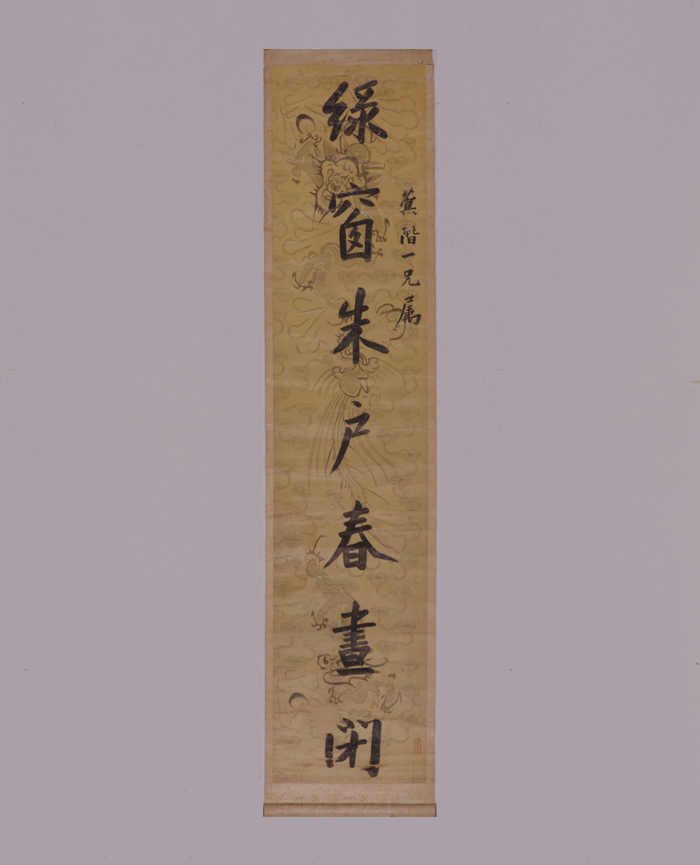 蓂階一兄属
綠窗朱户春晝閉